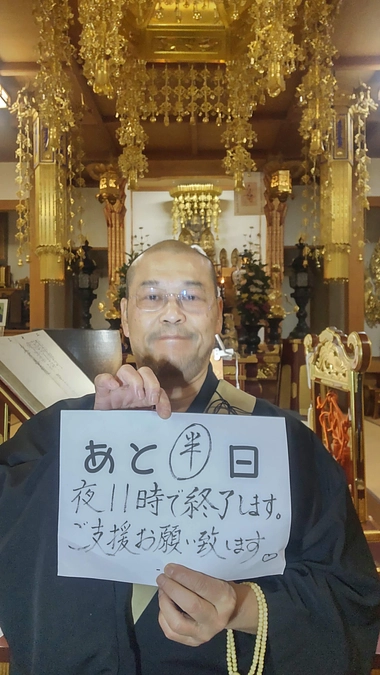 あと半日
夜11時で終了します。
ご支援お願い致します。